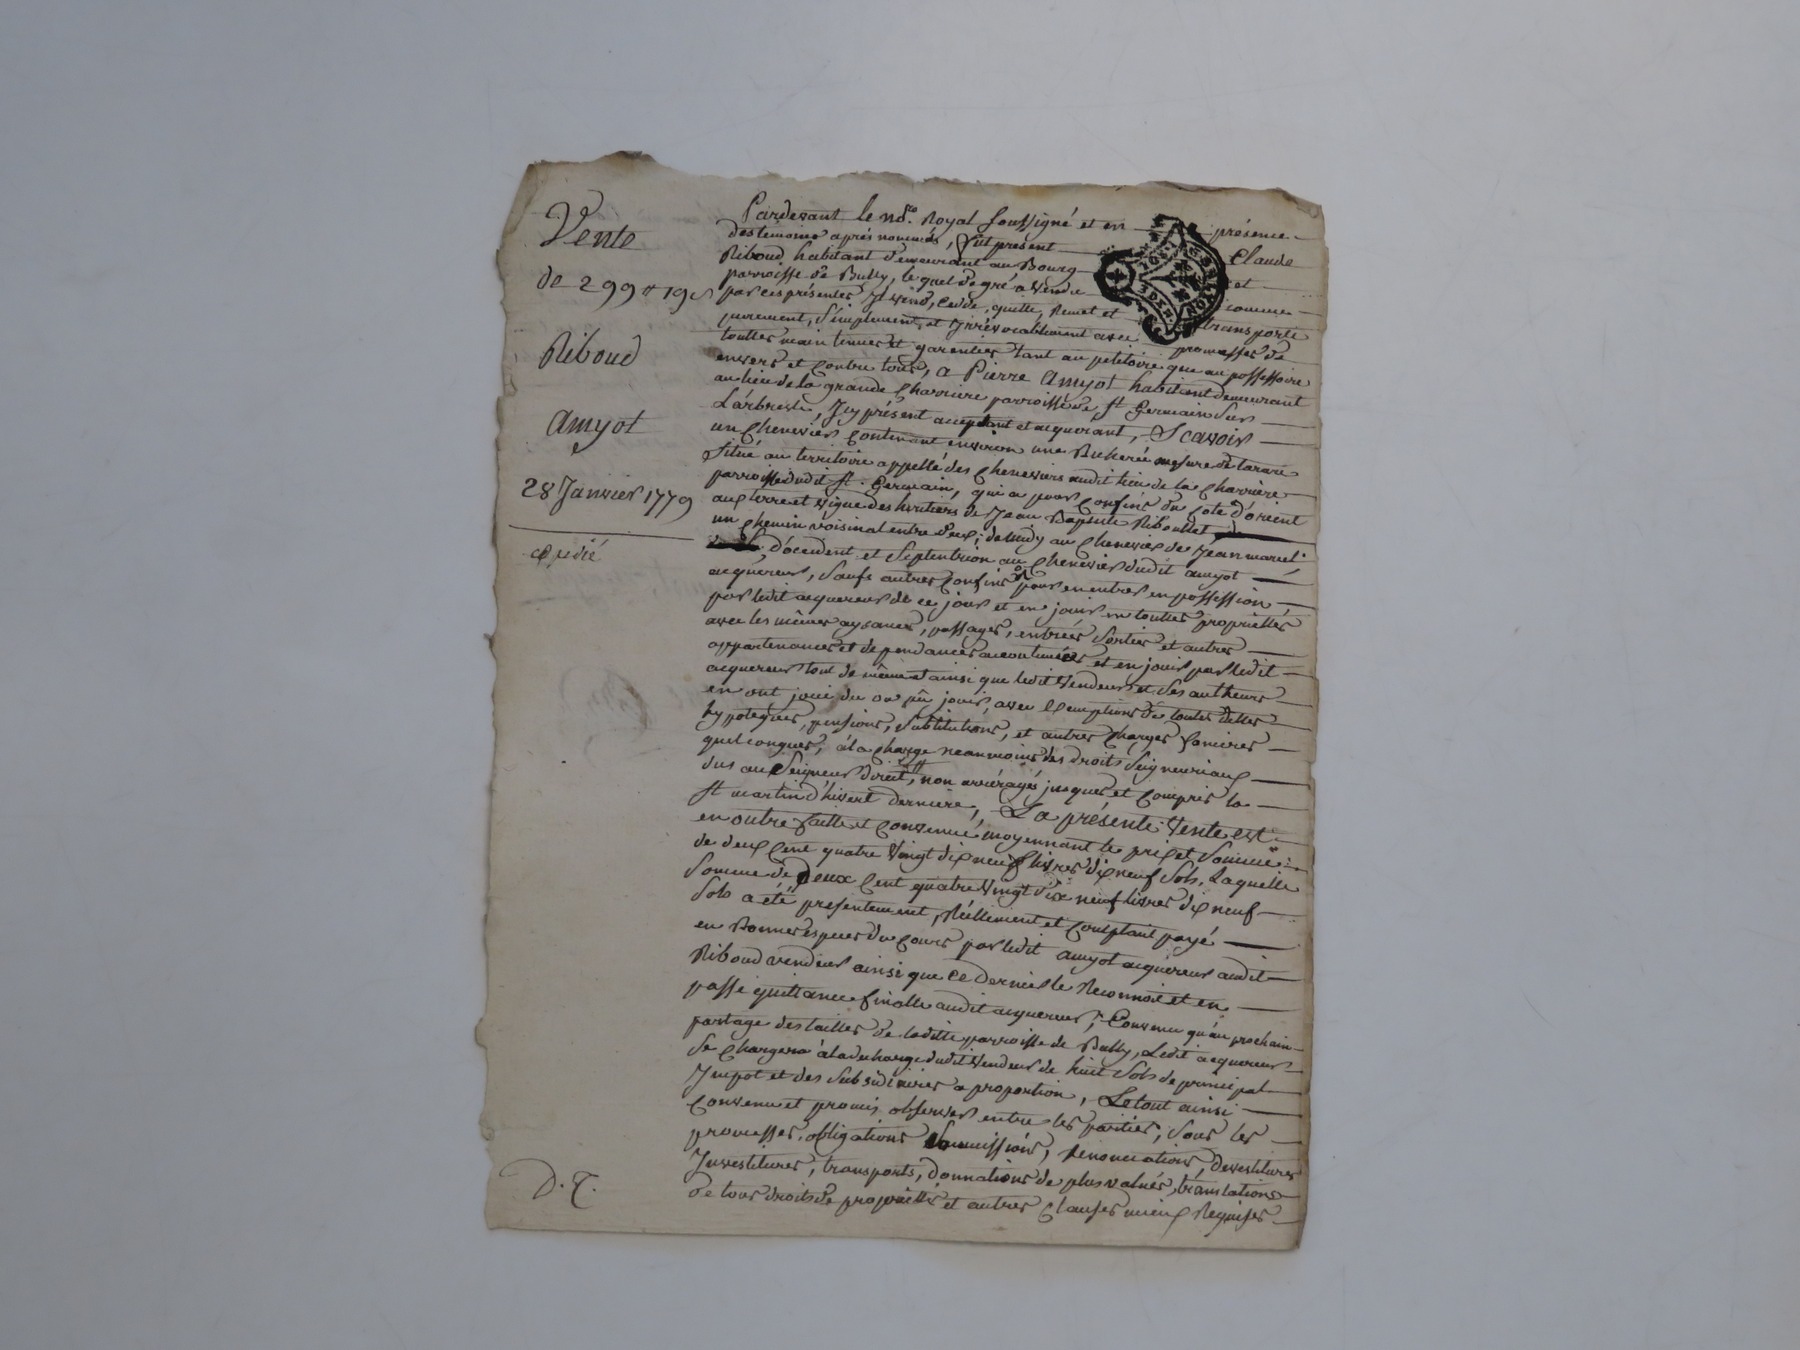 Vente
de 299 ₶ 19 s
Riboud
Amyot
28 Janvier 1779
expedié
Pardevant le no.re Royal soussigné et en présence
des temoins aprés nommés, fut present Claude
Riboud habitant demeurant au Bourg et
parroisse de Bully, lequel de gré a vendu comme
par ces présentes Il vend, cede, quitte, Remet et transporte
purement, simplement et Irrévocablement avec promesses de
touttes maintenues et garenties tant au petitoire que au possessoire
envers et contre tous, a Pierre Amyot habitant demeurant
au lieu de la grande Charriere parroisse de St Germain sur
L'arbresle, Icy présent acceptant et acquerant, Scavoir
un chenevier contenant environ une Bicherée mesure de tarare
situé au territoire appellé des cheneviers audit lieu de la Charriere
parroisse dudit St. Germain, qui a pour confins du coté d'orient
aux terre et vigne des heritiers de Jean Baptiste Riboullet
un chemin voisinal entre deux; de midy au chenevier de Jean marcel
d'occident et septentrion au chenevier dudit amyot
acquereur, saufs autres confins pour en entrer en possession
par ledit acquereur de ce jour et en jouir en touttes proprietés
avec les mêmes aysances, passages, entrées sorties et autres
appartenances et dependances accoutumées et en jouir par ledit
acquereur tout de même et ainsi que ledit vendeur et ses autheurs
en ont joui du ou pû jouir, avec Exemptions de toutes dettes
hypoteques, pensions, substitutions, et autres charges foncieres
quelconques, à la charge neanmoins des droits seigneuriaux
dus au seigneur direct, non arréragés jusques et compris la
St martin d'hivert derniere, La présente vente est
en outre faitte et convenue moyennant le prix et somme
de deux cent quatre vingt dix neuf livres dix neuf sols, Laquelle
somme de Deux cent quatre vingt dix neuf livres dix neuf
sols a été presentement, Réellement et comptant payé
en Bonnes especes du cours par ledit amyot acquereur audit
Riboud vendeur ainsi que ce dernier le Reconnoit et en
passe quittance finalle audit acquereur; Convenu qu'au prochain
partage des tailles de laditte parroisse de Bully, Ledit acquereur
se chargera à la decharge dudit vendeur de huit sols de principal
Impot et des subsidiaires a proportion, Le tout ainsi
convenu et promis observer entre les parties, sous les
promesses, obligations soumissions, renonciations, devestitures
Investitures, transports, donnations de plus values, translations
de tous droits de proprietés et autres clauses mieux Requises
D. T.